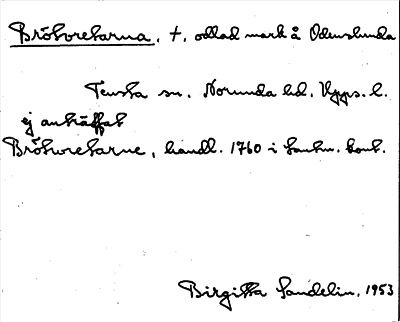 Brötvretarna, †, odlad mark å Odenslunda
Tensta sn. Norunda hd. Upps. l.
ej anträffat
Brötvretarne, handl. 1760 i lantm. kont.
Birgitta Sandelin, 1953